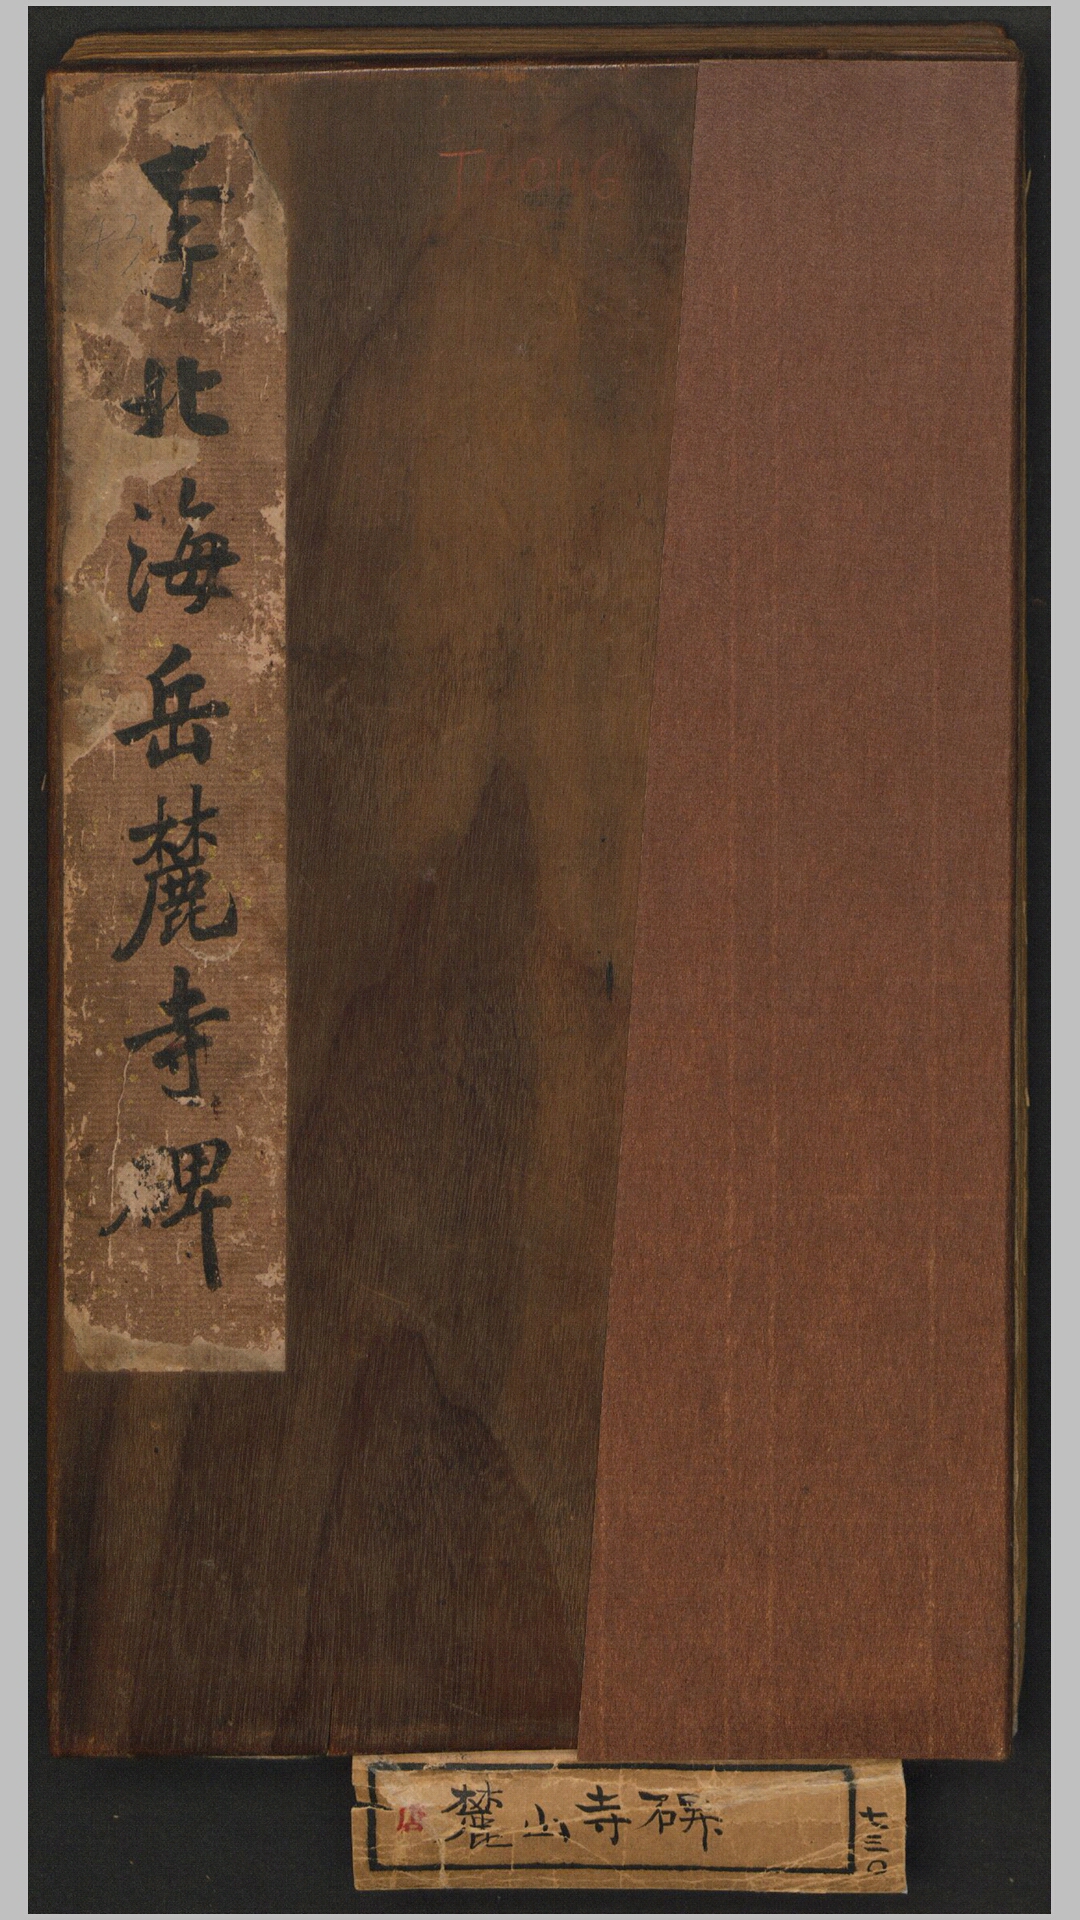 李北海岳麓寺碑
TAC46
唐
麓山寺碑
七三〇